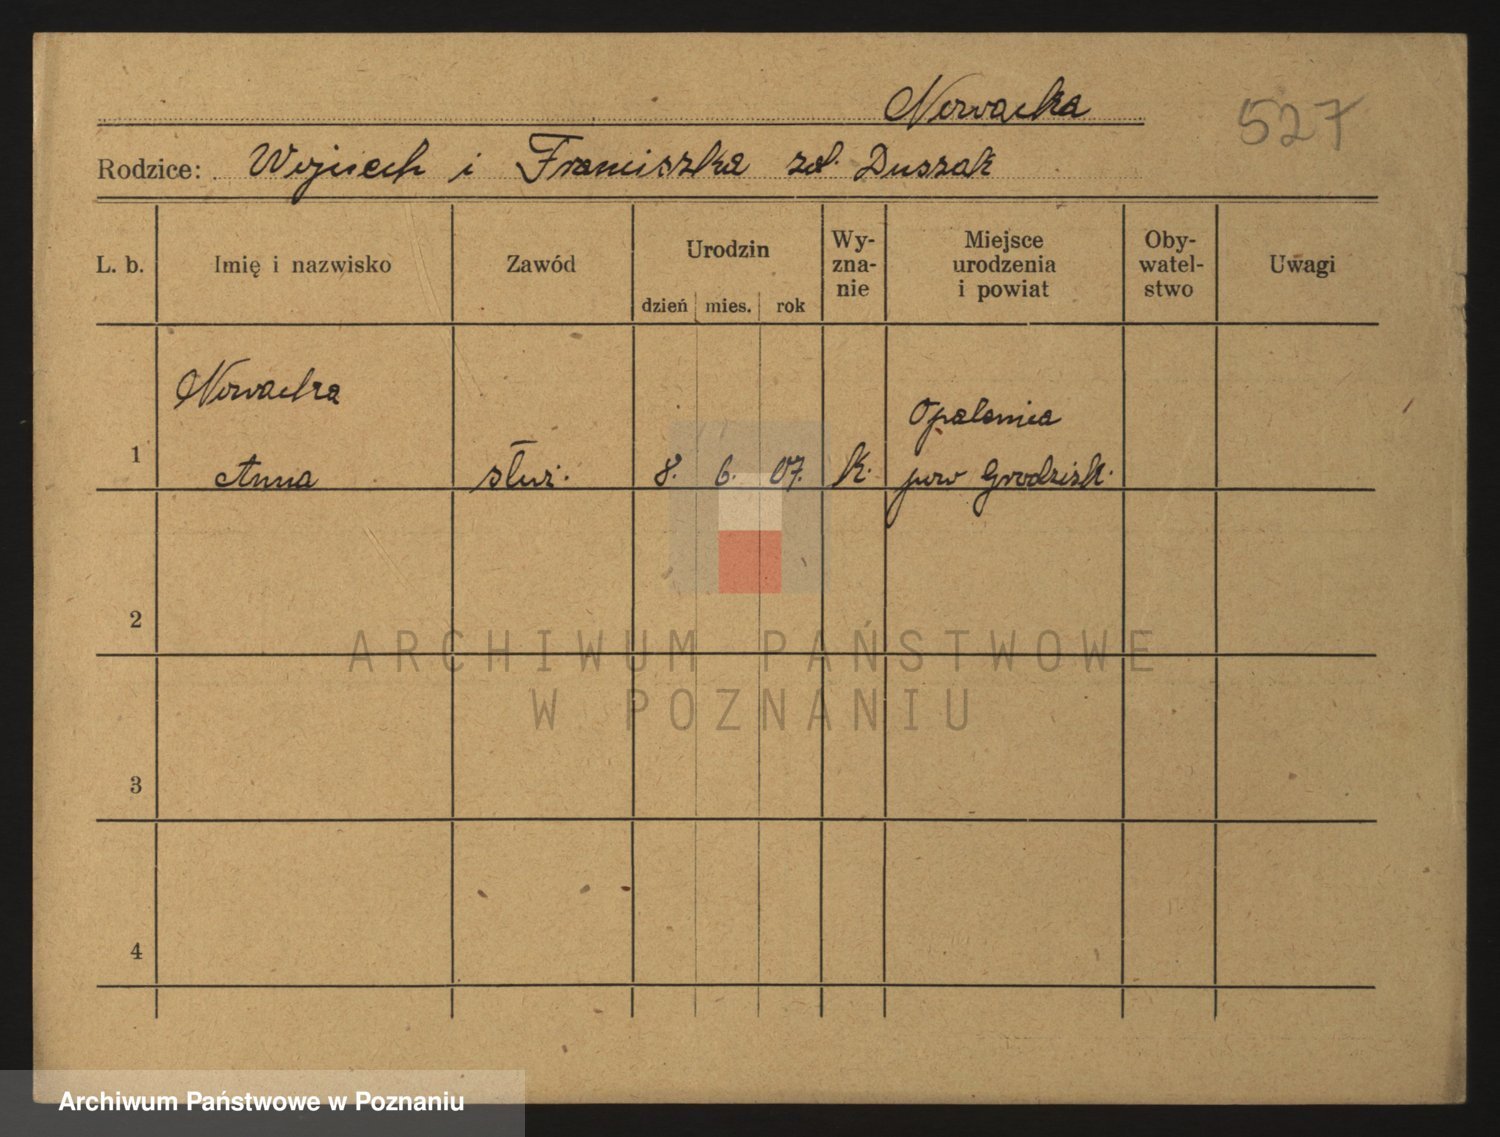 Nowacka
527
Rodzice: Wojciech i Franciszka zd. Duszak
L. b. Imię i nazwisko Zawód Urodzin dzień mies. rok Wy-zna-nie Miejsce urodzenia i powiat Oby-watel-stwo Uwagi
Nowacka Opalenica
1 Anna służ. 8. 6. 07. k. pow Grodzisk.
2
ARCHIWUM PAŃSTWOWE
W POZNANIU
3
4
Archiwum Państwowe w Poznaniu